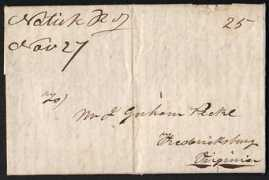 Natick R I 25
Nov 27
Mr J Graham
Fredericksburg
Virginia